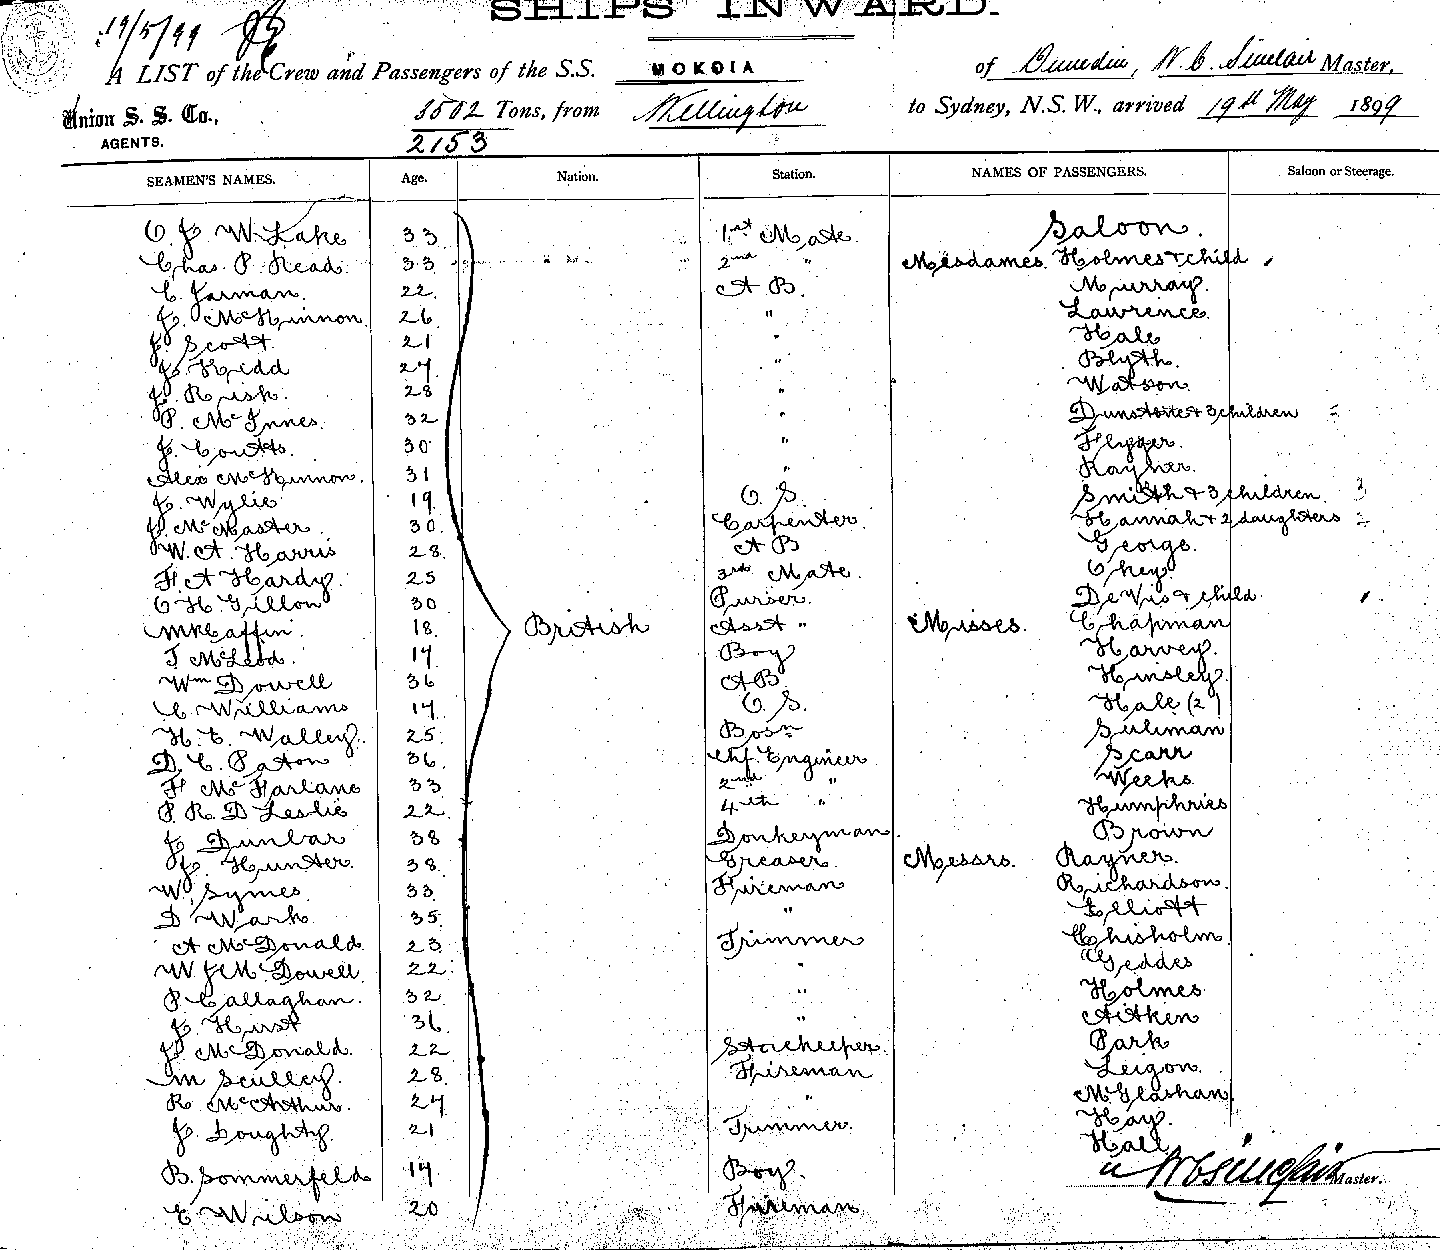 SHIPS INWARD.
19/5/99
A LIST of the Crew and Passengers of the S.S. MOKOIA of Dunedin, W. C. Sinclair Master,
Union S. S. Co., 3502 Tons, from Wellington to Sydney, N.S.W., arrived 19th May 1899
AGENTS. 2153
SEAMEN'S NAMES. Age. Nation. Station. NAMES OF PASSENGERS. Saloon or Steerage.
C. J. W. Lake 33 1st Mate Saloon.
Chas. P. Read 33 " " 2nd " Mesdames. Holmes & child
C. Jarman. 22 A B. Murray.
J. McKinnon 26 " Lawrence
J. Scott 21 " Hale
J. Kidd 27 " Blyth.
J. Rush. 28 " Watson
P. McInnes. 32 " & 3 children
J. Coutts. 30 " Flygger.
Alex McKinnon. 31 " Rayner.
J. Wylie 19 O. S. Smith & 3 children.
J. McMaster 30. Carpenter. Hannah & 2 daughters
W. A. Harris 28. A B George.
F. A Hardy. 25 3rd Mate. Ohey.
C H Gillon 30 Purser. De Vis & child.
Caffin 18. Asst " Misses. Chapman
T McLeod. 17 Boy Harvey.
Wm Dowell 36 A B Hinsley.
C Williams 17. O. S. Hale (2)
H. E. Walley. 25. Bosn Suliman
D. C. Paton 36. Chf. Engineer Scarr
F McFarlane 33 2nd " Weeks
P. R. D Leslie 22. 4th " Humphries
J Dunbar 38 Donkeyman. Brown
J. Hunter. 38. Greaser. Messrs. Rayner.
W. Symes. 33. Fireman Richardson.
D Wark 35. " Elliott
A McDonald 23. Trimmer Chisholm.
W J McDowell 22. " Geddes
P Callaghan. 32 " Holmes
J. Hirst 36. " Aitken
J McDonald. 22 Storekeeper. Park
M Sculley. 28. Fireman Leigon.
R McArthur. 27 " McGlashan.
J. Doughty. 21 Trimmer. Hay.
Hall
B. Sommerfeld 17 Boy. W C Sinclair Master.
E Wilson 20 Fireman
British